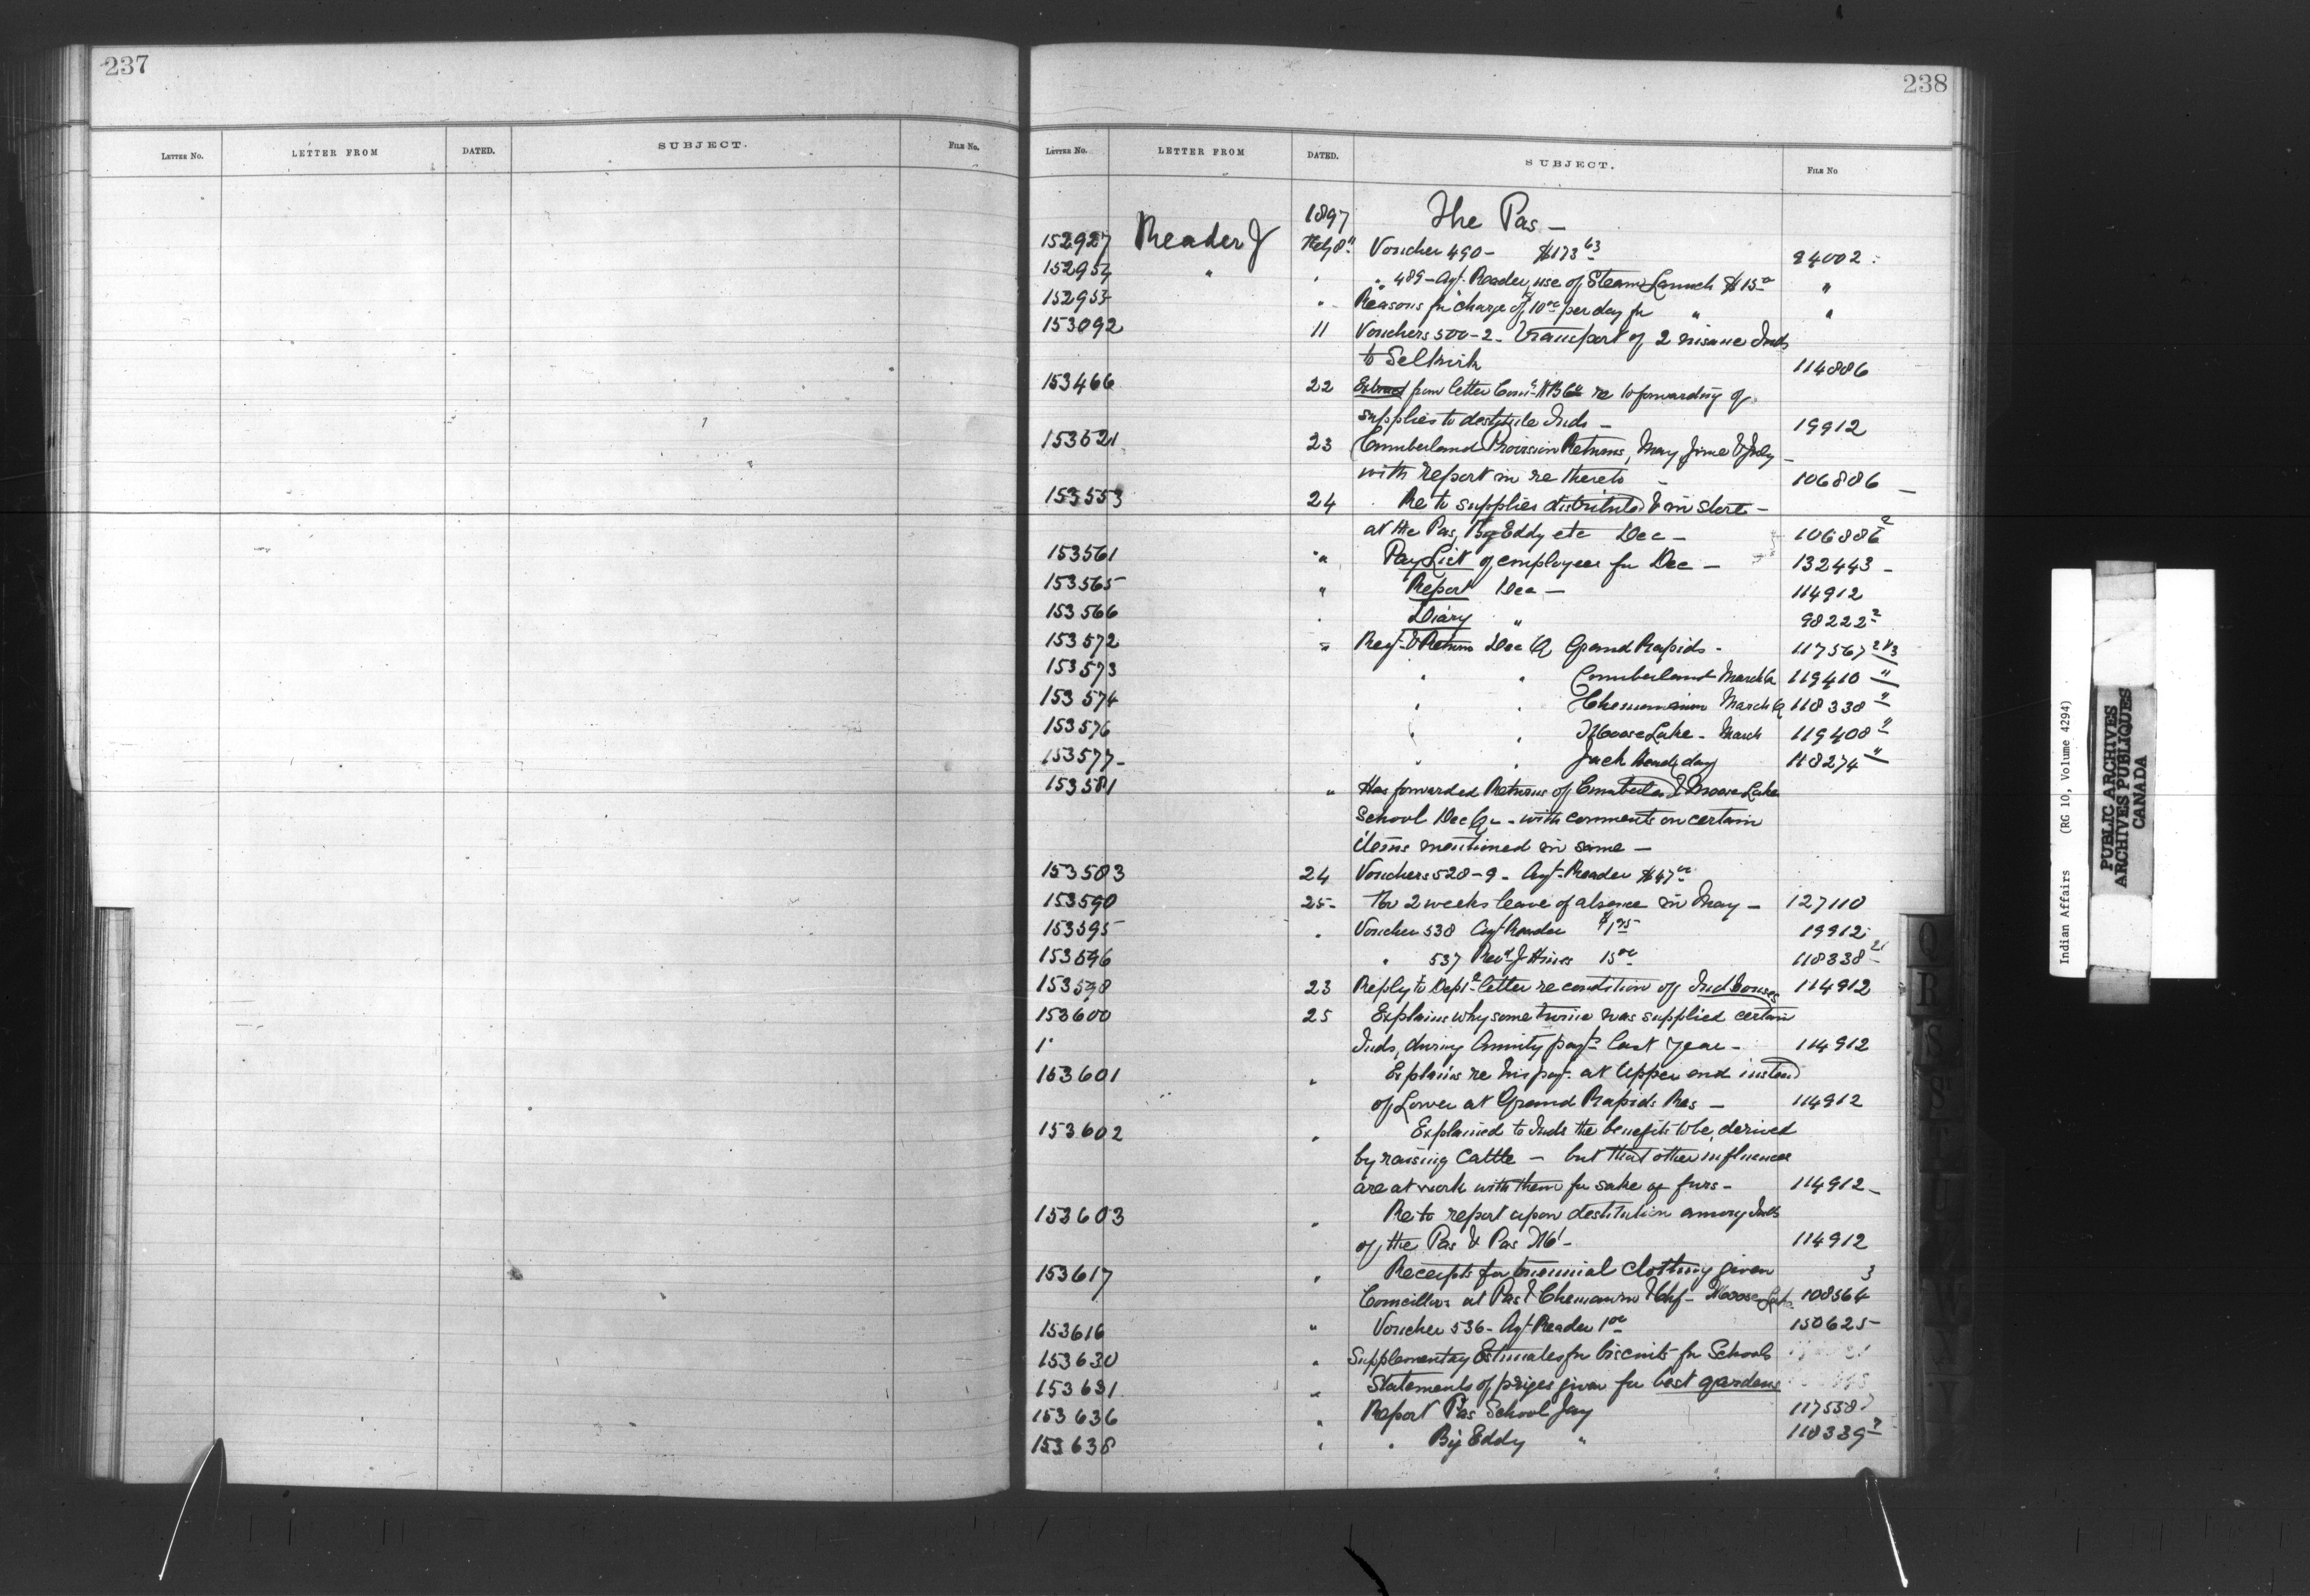 237
LETTER NO. LETTER FROM DATED. SUBJECT. FILE NO.
238
LETTER NO. LETTER FROM DATED. SUBJECT. FILE NO
1897 The Pas —
152927 Reader J Feby 8" Voucher 490 - $173 63 94002
152954 " " " 489 - Agt. Reader, use of Steam Launch $15 00 "
152953 " Reasons for charge of 10 00 per day for " "
153092 11 Vouchers 500-2 - Transport of 2 insane Inds
to Selkirk 114886
153466 22 Extract from letter Comr. HBCo re to forwarding of
supplies to destitute Inds — 19912
153521 23 Cumberland Provision Returns, May June & July —
with report in re thereto — 106886 —
153553 24 Re to supplies distributed & in store —
at the Pas, Big Eddy etc Dec — 106886 2
153561 " Pay List of employees for Dec — 132443 -
153565 " Report Dec — 114912
153566 " Diary " 98222 2
153572 " Reqt & Returns Dec Q Grand Rapids - 117567 2 & 3
153573 " " Cumberland March Q 119410 "
153574 " " Chemawawin March Q 118338 "
153576 " " Moose Lake - March 119408 "
153577 - " " Jack Head, day 118274 "
153581 " Has forwarded Returns of Cumberland & Moose Lake
School Dec Q - with comments on certain
items mentioned in same —
153583 24 Vouchers 528-9 - Agt. Reader $47 00
153590 25 - For 2 weeks leave of absence in May — 127110
153595 " Voucher 538 Agt. Reader $1 95 19912
153596 " " 537 Revd J Hines 15 00 118338 2
153598 23 Reply to Dept. letter re condition of Ind houses 114912
153600 25 Explains why some twine was supplied certain
1" Inds, during Annuity payts last year - 114912
153601 " Explains re his payt. at Upper end instead
of Lower at Grand Rapids Res — 114912
153602 " Explained to Inds the benefits to be derived
by raising Cattle — but that other influences
are at work with them for sake of furs - 114912 -
153603 " Re to report upon destitution among Inds
of the Pas & Pas Mt - 114912
153617 " Receipts for triennial clothing given 3
Councillors at Pas & Chemawawin & Chf - Moose Lake 108564
153616 " Voucher 536 - Agt. Reader 1 00 150625
153630 " Supplementary Estimates for biscuits for Schools
153631 " Statements of prizes given for best gardens
153636 " Report Pas School Jany 117538
153638 " " Big Eddy " 118339 2
Q
R
S
Indian Affairs (RG 10, Volume 4294)
PUBLIC ARCHIVES
ARCHIVES PUBLIQUES
CANADA